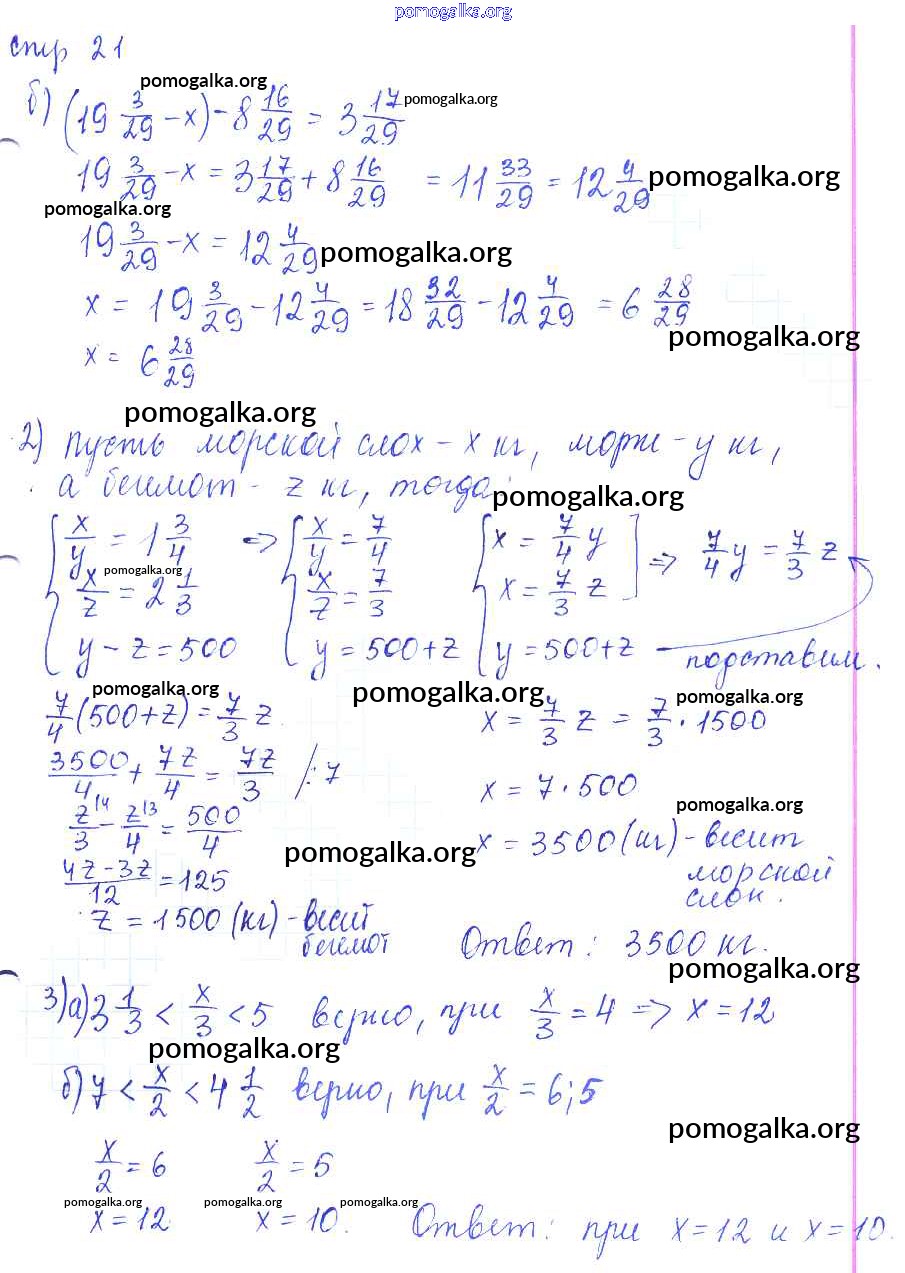 pomogalka.org
стр 21
pomogalka.org
б) (19 3/29 - x) - 8 16/29 = 3 17/29 pomogalka.org
19 3/29 - x = 3 17/29 + 8 16/29 = 11 33/29 = 12 4/29 pomogalka.org
pomogalka.org
19 3/29 - x = 12 4/29 pomogalka.org
x = 19 3/29 - 12 4/29 = 18 32/29 - 12 4/29 = 6 28/29
pomogalka.org
x = 6 28/29
pomogalka.org
2) Пусть морской слох - x кг, морж - y кг,
а бегемот - z кг, тогда: pomogalka.org
{ x/y = 1 3/4 => { x/y = 7/4 { x = 7/4 y ] => 7/4 y = 7/3 z
pomogalka.org
x/z = 2 1/3 x/z = 7/3 x = 7/3 z
y - z = 500 y = 500 + z y = 500 + z - подставим.
pomogalka.org pomogalka.org pomogalka.org
7/4 (500 + z) = 7/3 z x = 7/3 z = 7/3 · 1500
3500/4 + 7z/4 = 7z/3 /: 7 x = 7 · 500
pomogalka.org
z/3 |4 - z/4 |3 = 500/4 pomogalka.org x = 3500 (кг) - весит
морской
слон.
4z - 3z/12 = 125
z = 1500 (кг) - весит
бегемот
Ответ: 3500 кг.
pomogalka.org
3) а) 3 1/3 < x/3 < 5 верно, при x/3 = 4 => x = 12
pomogalka.org
б) 7 < x/2 < 4 1/2 верно, при x/2 = 6; 5
pomogalka.org
x/2 = 6 x/2 = 5
pomogalka.org pomogalka.org pomogalka.org
x = 12 x = 10. Ответ: при x = 12 и x = 10.